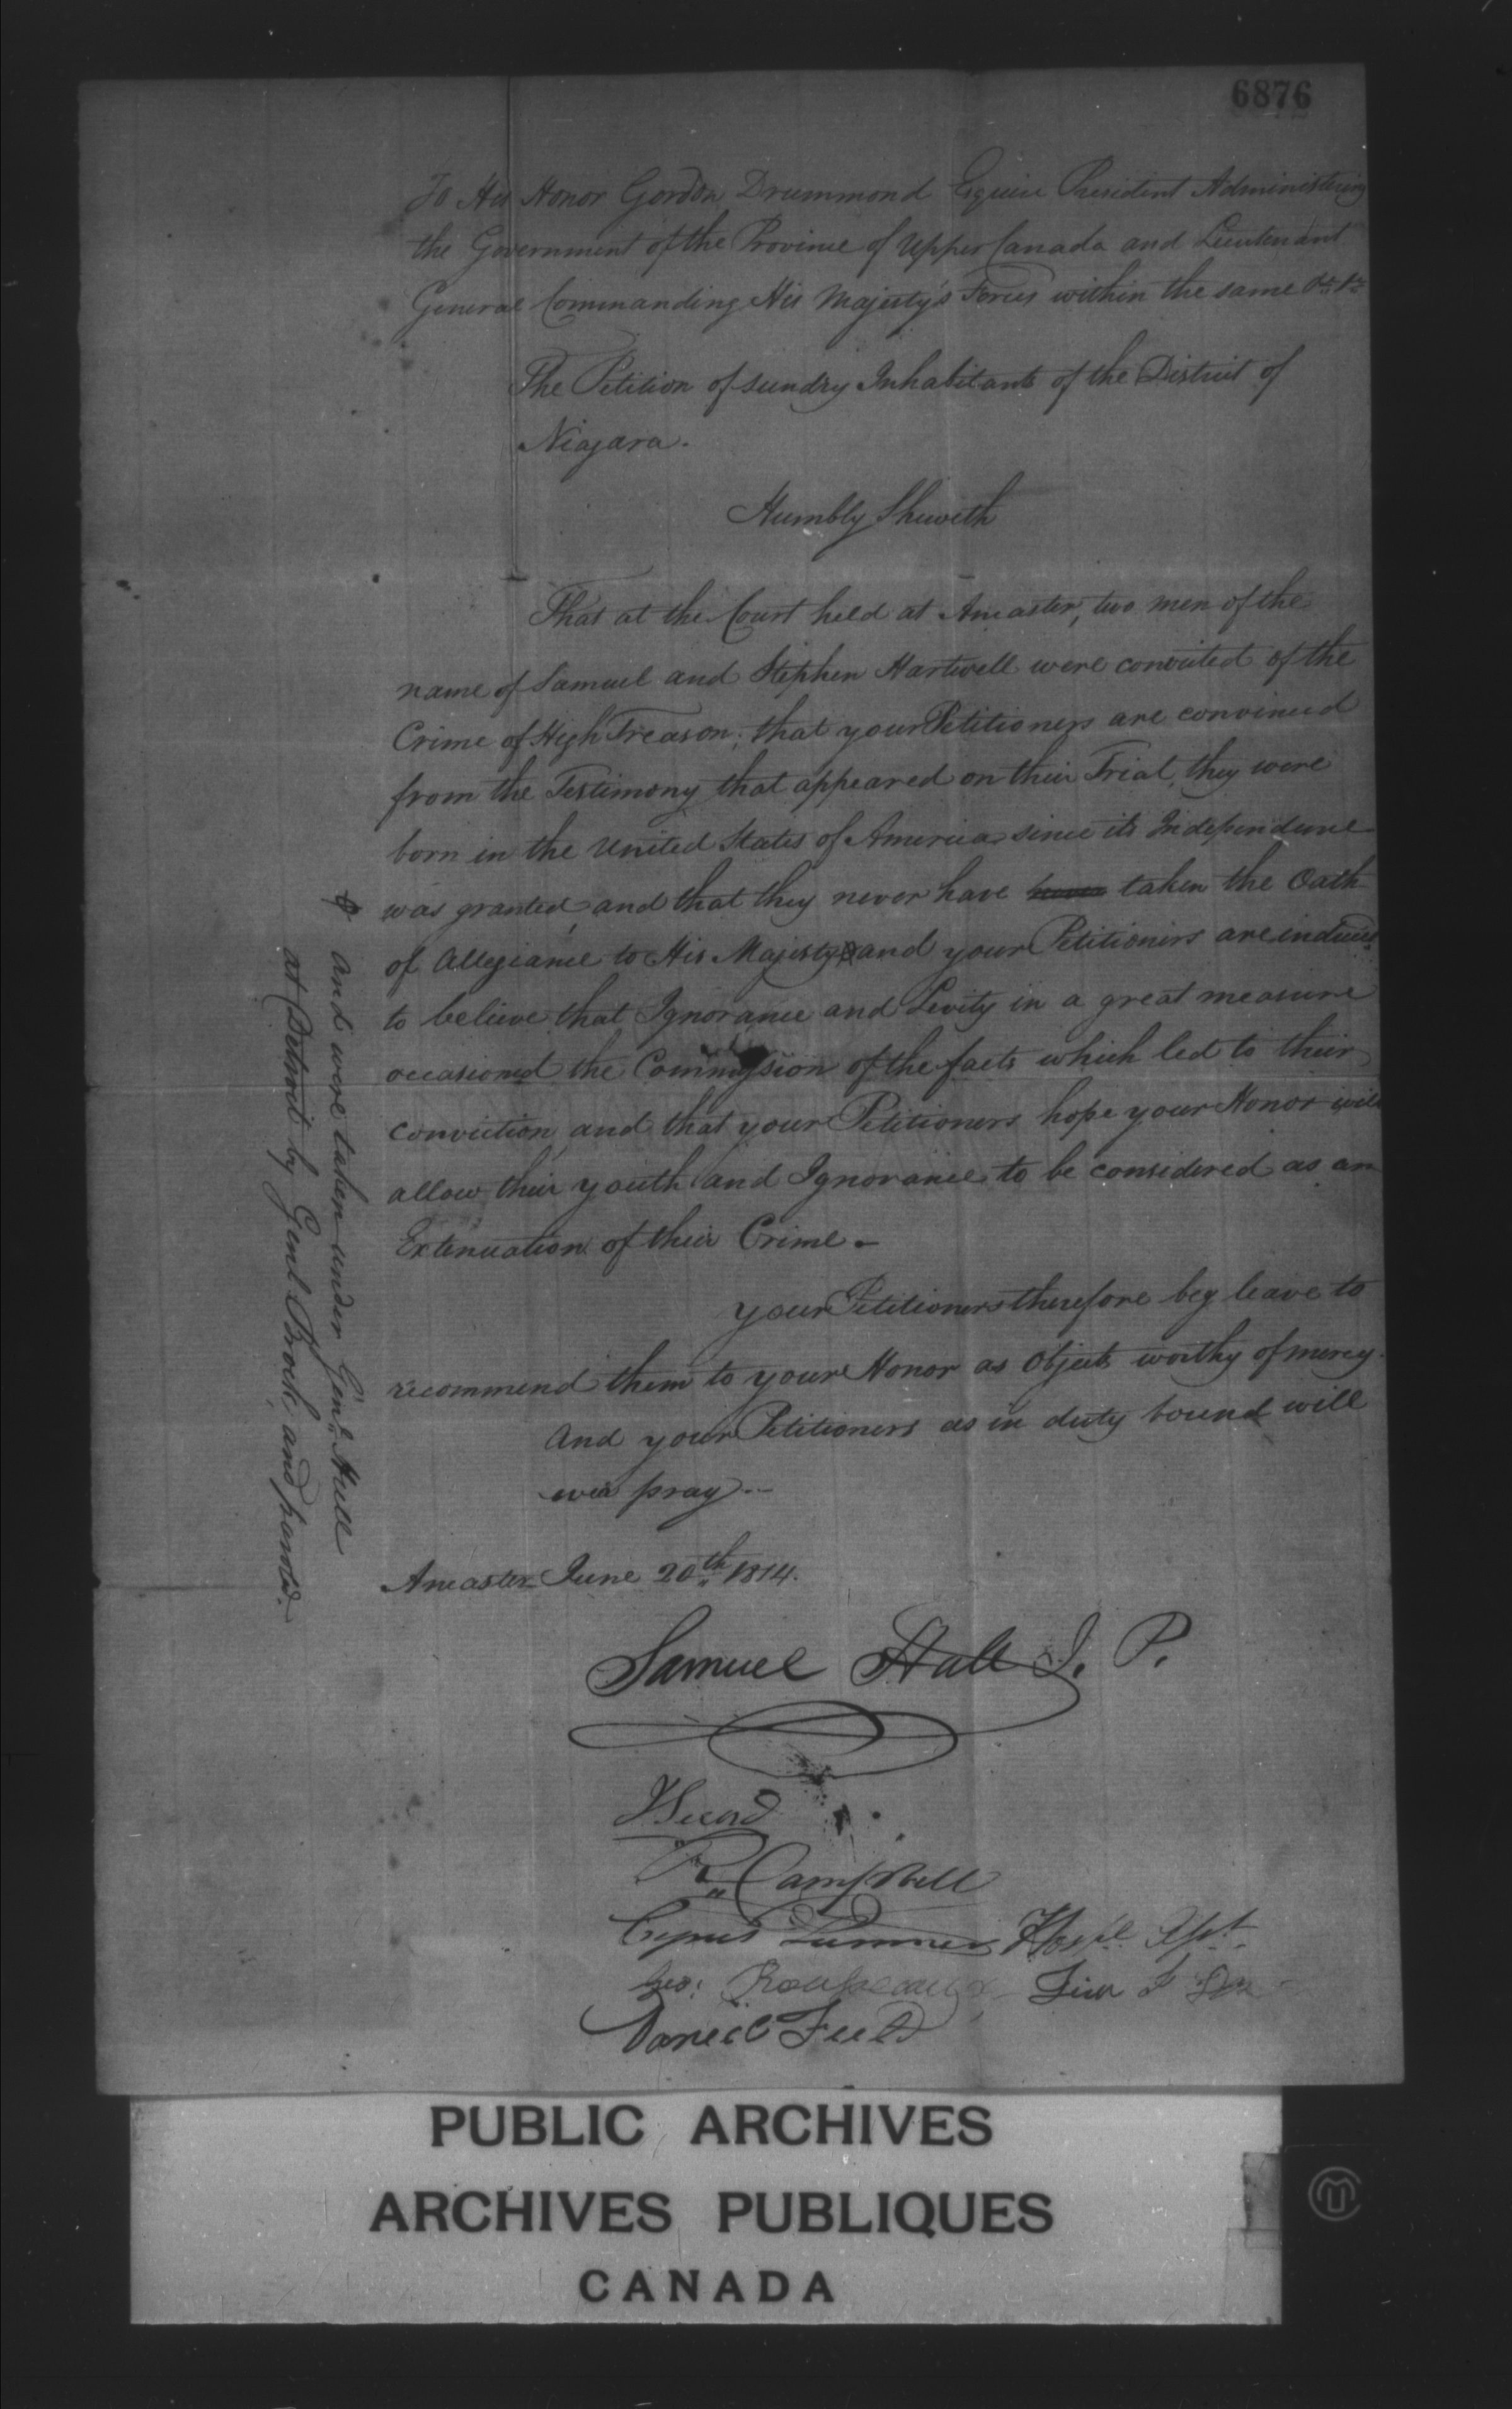 6876
To His Honor Gordon Drummond Esquire President Administering
the Government of the Province of Upper Canada and Lieutenant
General Commanding His Majesty's Forces within the same
The Petition of sundry Inhabitants of the District of
Niagara.
Humbly Sheweth
That at the Court held at Ancaster, two men of the
name of Samuel and Stephen Hartwell were convicted of the
Crime of High Treason; that your Petitioners are convinced
from the Testimony that appeared on their Trial, they were
born in the United States of America since its Independence
was granted, and that they never have taken the Oath
of Allegiance to His Majesty and your Petitioners are induced
to believe that Ignorance and Levity in a great measure
occasioned the Commission of the facts which led to their
conviction, and that your Petitioners hope your Honor will
allow their youth and Ignorance to be considered as an
Extenuation of their Crime.
your Petitioners therefore beg leave to
recommend them to your Honor as Objects worthy of mercy.
And your Petitioners as in duty bound will
ever pray.
and were taken under Genl. Hull
at Detroit by Genl Brock, and parold.
Ancaster June 20th 1814.
Samuel Hatt J. P.
Secord
R. Campbell
Cyrus Sumner Hospl. Asst.
Geo: Rousseaux
Daniel Field
PUBLIC ARCHIVES
ARCHIVES PUBLIQUES
CANADA